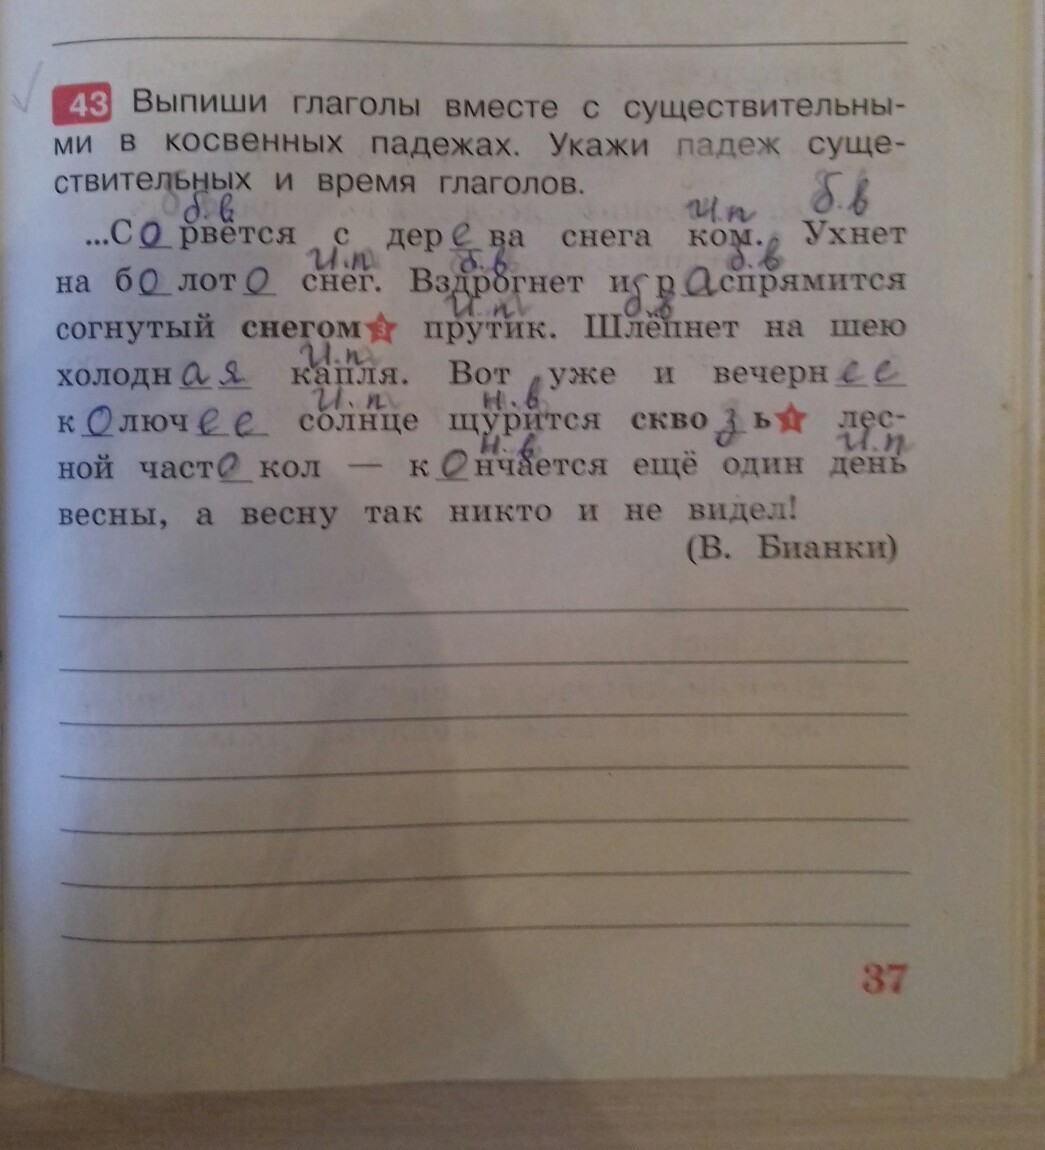 43 Выпиши глаголы вместе с существительны-
ми в косвенных падежах. Укажи падеж суще-
ствительных и время глаголов.
б.в И.п б.в
...Сорвётся с дерева снега ком. Ухнет
И.п б.в б.в
на болото снег. Вздрогнет и распрямится
И.п б.в
согнутый снегом 3 прутик. Шлёпнет на шею
И.п
холодная капля. Вот уже и вечернее
И.п н.в
колючее солнце щурится сквозь 1 лес-
н.в И.п
ной частокол — кончается ещё один день
весны, а весну так никто и не видел!
(В. Бианки)
37